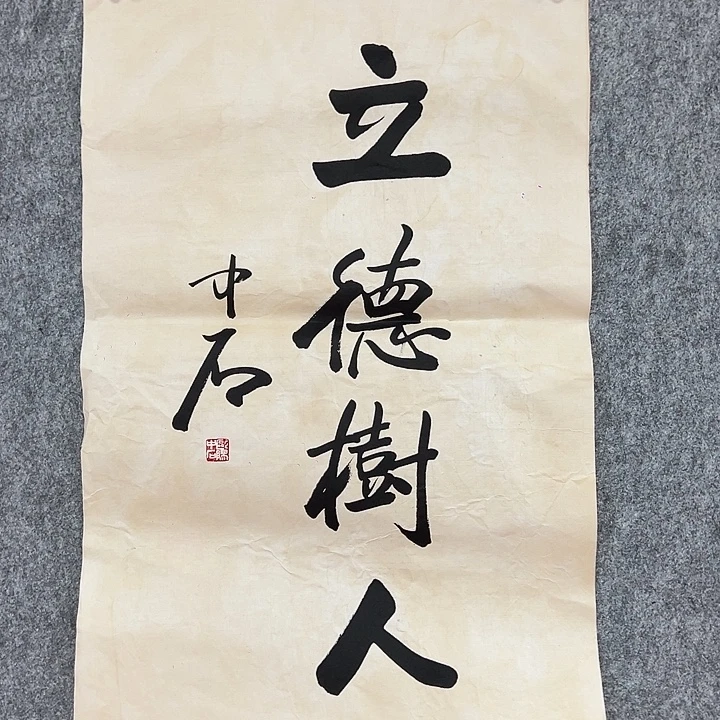 立德樹人
中石